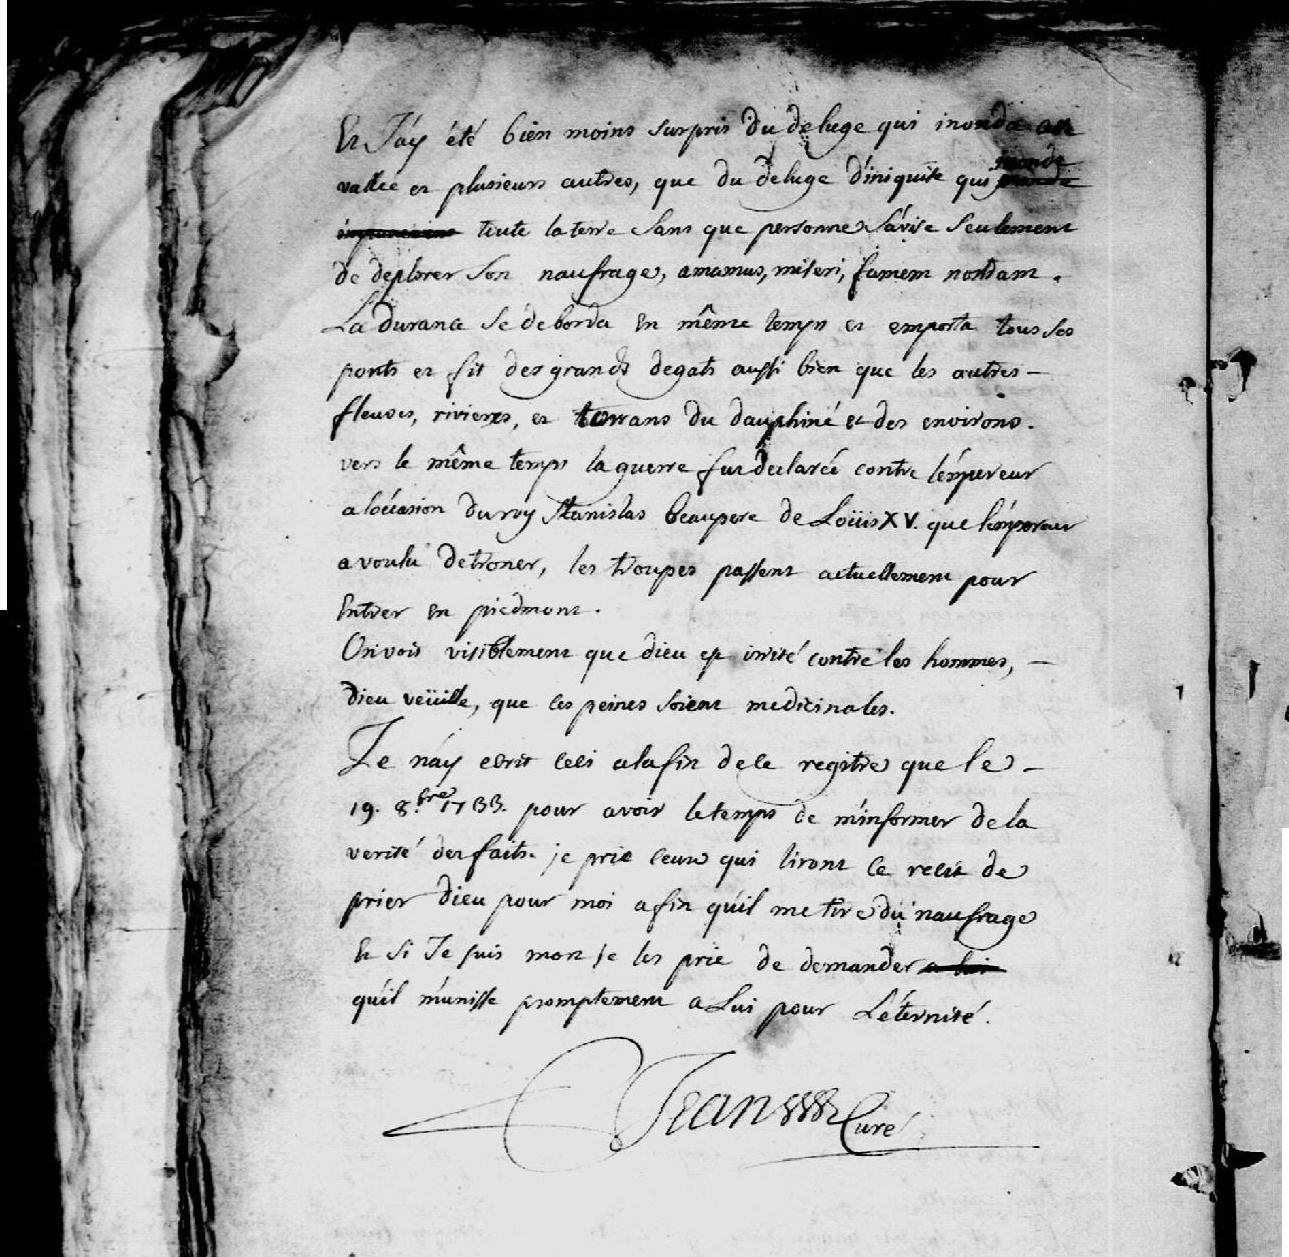 Et J'ay été bien moins surpris du deluge qui inonda cette
vallée et plusieurs autres, que du deluge d'iniquité qui inonde
toute la terre sans que personne s'avise seulement
de deplorer son naufrage, amamus, miseri,
La durance se deborda en même temps et emporta tous ses
ponts et fit des grands degats aussi bien que les autres -
fleuves, rivieres, et torrans du dauphiné et des environs.
vers le même temps la guerre fut declarée contre l'émpereur
a loccasion du roy Stanislas beaupere de Loüis XV. que l'émpereur
a voulu detroner, les troupes passent actuellement pour
Entrer en piedmont.
On voit visiblement que dieu est irrité contre les hommes, -
dieu veüille, que ces peines soient medicinales.
Je n'ay ecrit ceci a la fin de ce registre que le -
19. 8.bre 1733. pour avoir le temps de m'informer de la
verité des faits. je prie ceux qui liront ce recit de
prier dieu pour moi afin qu'il me tire du naufrage
Et si Je suis mort Je les prie de demander a lui
qu'il m'unisse promptement a Lui pour L'éternité.
Jean Curé